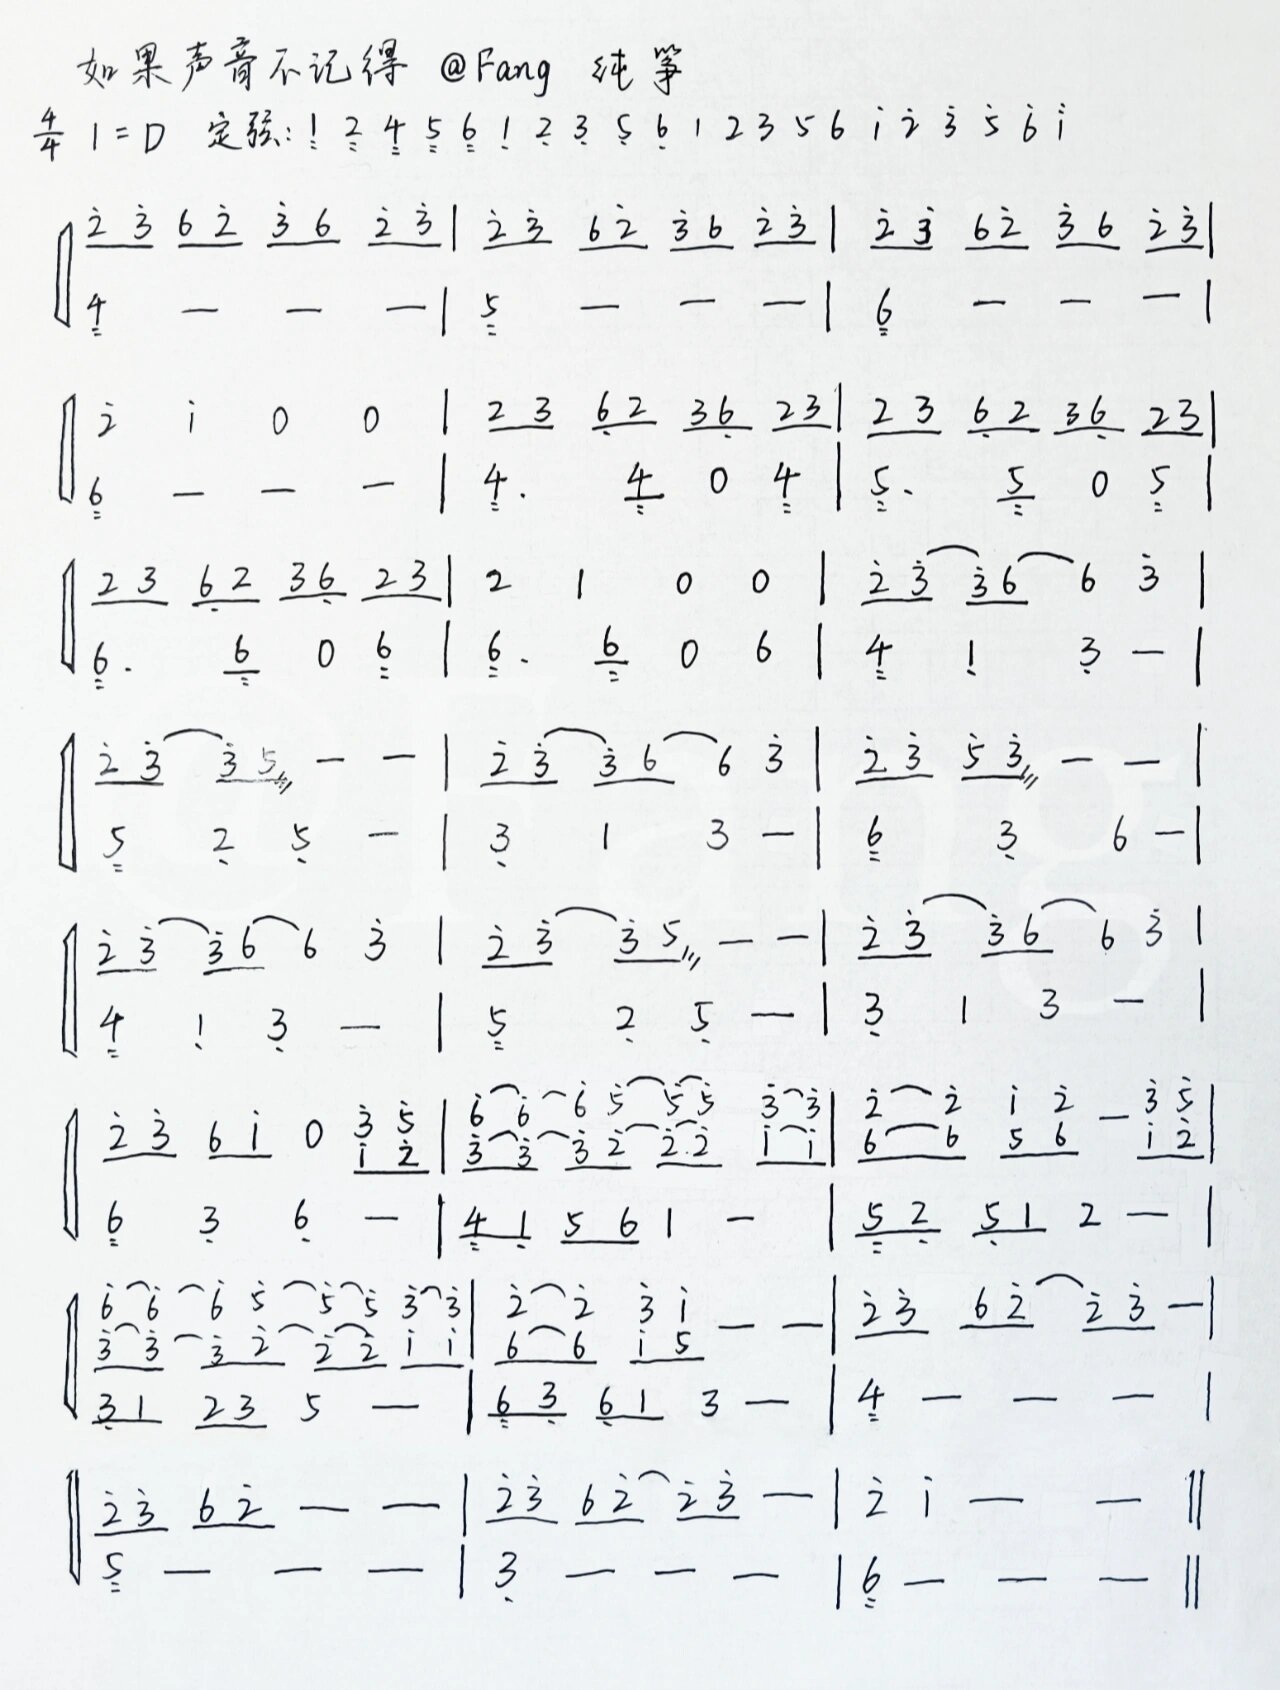 如果声音不记得 @Fang 纯筝
4/4 1=D 定弦: 1̤ 2̤ 4̤ 5̤ 6̤ 1̣ 2̣ 3̣ 5̣ 6̣ 1 2 3 5 6 1̇ 2̇ 3̇ 5̇ 6̇ i̇
2̇ 3̇ 6 2̇ 3̇ 6 2̇ 3̇ | 2̇ 3̇ 6 2̇ 3̇ 6 2̇ 3̇ | 2̇ 3̇ 6 2̇ 3̇ 6 2̇ 3̇ |
4̤ — — — | 5̤ — — — | 6̤ — — — |
2̇ 1̇ 0 0 | 2 3 6̣ 2 3 6̣ 2 3 | 2 3 6̣ 2 3 6̣ 2 3 |
6̤ — — — | 4̤. 4̤ 0 4̤ | 5̤. 5̤ 0 5̤ |
2 3 6̣ 2 3 6̣ 2 3 | 2 1 0 0 | 2̇ 3̇ 3̇ 6 6 3̇ |
6̤. 6̤ 0 6̤ | 6̤. 6̤ 0 6 | 4̤ 1̣ 3̣ — |
2̇ 3̇ 3̇ 5 — — | 2̇ 3̇ 3̇ 6 6 3̇ | 2̇ 3̇ 5̇ 3̇ — — |
5̤ 2̣ 5̣ — | 3̣ 1 3 — | 6̤ 3̣ 6 — |
2̇ 3̇ 3̇ 6 6 3̇ | 2̇ 3̇ 3̇ 5 — — | 2̇ 3̇ 3̇ 6 6 3̇ |
4̤ 1̣ 3̣ — | 5̤ 2̣ 5̣ — | 3̣ 1 3 — |
2̇ 3̇ 6 1̇ 0 3̇ 5̇ | 6̇ 6̇ 6̇ 5̇ 5̇ 5̇ 3̇ 3̇ | 2̇ 2̇ 1̇ 2̇ — 3̇ 5̇ |
1̇ 2̇ | 3̇ 3̇ 3̇ 2̇ 2̇ 2̇ 1̇ 1̇ | 6 6 5 6 1̇ 2̇ |
6̤ 3̣ 6̣ — | 4̤ 1̣ 5 6 1 — | 5̤ 2̣ 5̣ 1 2 — |
6̇ 6̇ 6̇ 5̇ 5̇ 5̇ 3̇ 3̇ | 2̇ 2̇ 3̇ 1̇ — — | 2̇ 3̇ 6 2̇ 2̇ 3̇ — |
3̇ 3̇ 3̇ 2̇ 2̇ 2̇ 1̇ 1̇ | 6 6 1̇ 5
3̣ 1 2 3 5 — | 6̤ 3̣ 6̣ 1 3 — | 4̤ — — — |
2̇ 3̇ 6 2̇ — — | 2̇ 3̇ 6 2̇ 2̇ 3̇ — | 2̇ 1̇ — — ‖
5̤ — — — | 3̣ — — — | 6̤ — — — ‖